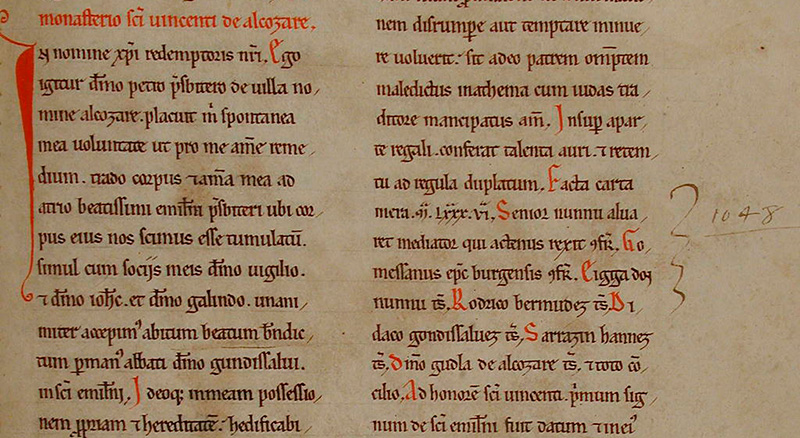 monasterio sc̄i uincenti de alcozare.
In nomine xp̄i redemptoris nr̄i. Ego
igitur dn̄no petro p̄sbitero de uilla no
mine alcozare. placuit m̄ spontanea
mea uoluntate ut pro me aīe reme
dium. trado corpus ⁊ aīma mea ad
atrio beatissimi emilīni p̄sbiteri ubi cor
pus eius nos scimus esse tumulatū.
simul cum socijs meis dn̄no uigilio.
⁊ dn̄no ioh̄e. et dn̄no galindo. unani
miter accepim⁹ abitum beatum bn̄dic
tum p̱man⁹ abbati dn̄no gundissalui.
in sc̄i emilīni, Ideoq; in meam possessio
nem p̱priam ⁊ hereditatē. hedificabi
nem disrump̱e aut temptare minue
re uoluerit. sit adeo patrem omp̄tem
maledictus mathema cum iudas tra
ditore mancipatus am̄. Insup̱ apar
te regali. conferat talenta auri. ⁊ retem
tu ad regula duplatum, Facta carta
in era. M̄. LXXX. VI, Senior nunnu alua
ret mediator qui actenus rexit ɔfr̄. Go
messanus ep̄c burgensis ɔfr̄. Eigga doɲ
nunnu ts̄, Rodrico bermudez ts̄. Di
daco gondissaluez ts̄, Sarrazin hannez
ts̄, dn̄no gudla de alcozare ts̄, ⁊ toto cō
cilio, Ad honorē sc̄i uincenti. p̄mum sig
num de sc̄i emilīni fuit datum ⁊ mei⁹
1048